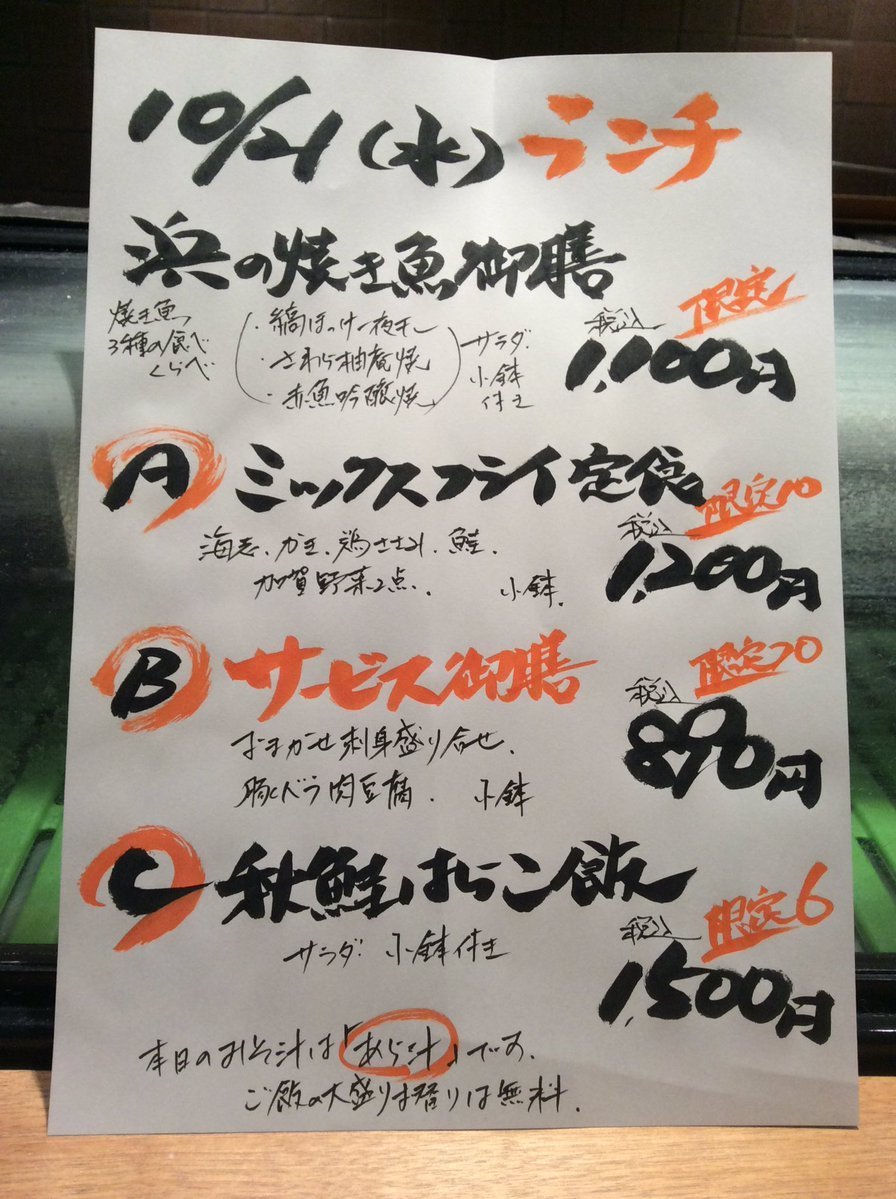 10/21(水)ランチ
浜の焼き魚御膳
焼き魚
3種の食べ
くらべ
・縞ほっけ一夜干し
・さわら柚庵焼
・赤魚吟醸焼
サラダ
小鉢
付き
限定
税込
1,100円
A ミックスフライ定食
海老、かき、鶏ささみ、鮭、
加賀野菜2点、 小鉢、
限定10
税込
1,200円
B サービス御膳
おまかせ刺身盛り合せ、
豚バラ肉豆腐、 小鉢
限定20
税込
890円
C 秋鮭はらこ飯
サラダ 小鉢付き
限定6
税込
1,500円
本日のおみそ汁は「あら汁」です、
ご飯の大盛りお替りは無料、